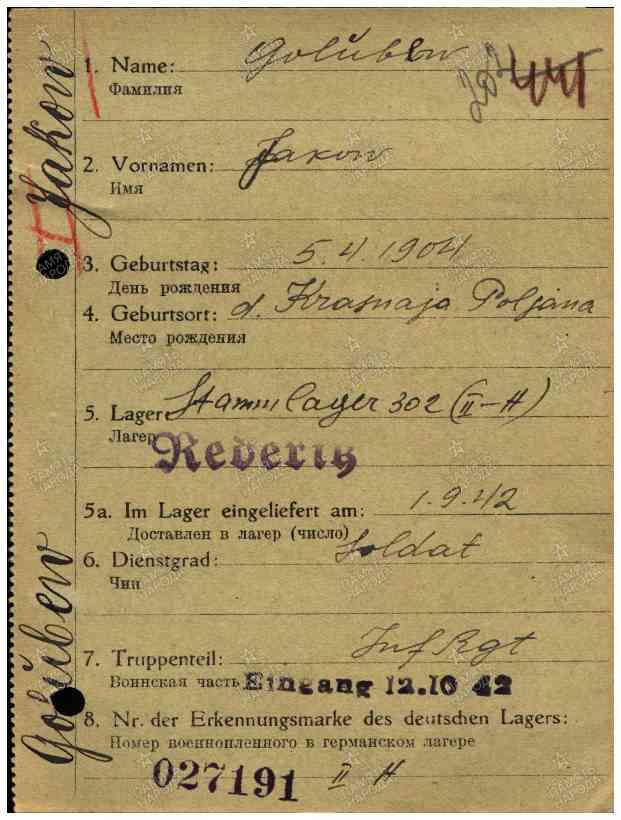 Jakow
Golúbew
1. Name: Golúbew
Фамилия
441
2. Vornamen: Jakow
Имя
3. Geburtstag: 5.4.1904
День рождения
4. Geburtsort: d. Krasnaja Poljana
Место рождения
5. Lager: Stammlager 302 (II-H)
Лагерь
Rederitz
5a. Im Lager eingeliefert am: 1.9.42
Доставлен в лагерь (число)
6. Dienstgrad: Soldat
Чин
7. Truppenteil: Inf Rgt
Воинская часть Eingang 12.10 42
8. Nr. der Erkennungsmarke des deutschen Lagers:
Номер военнопленного в германском лагере
027191 II H